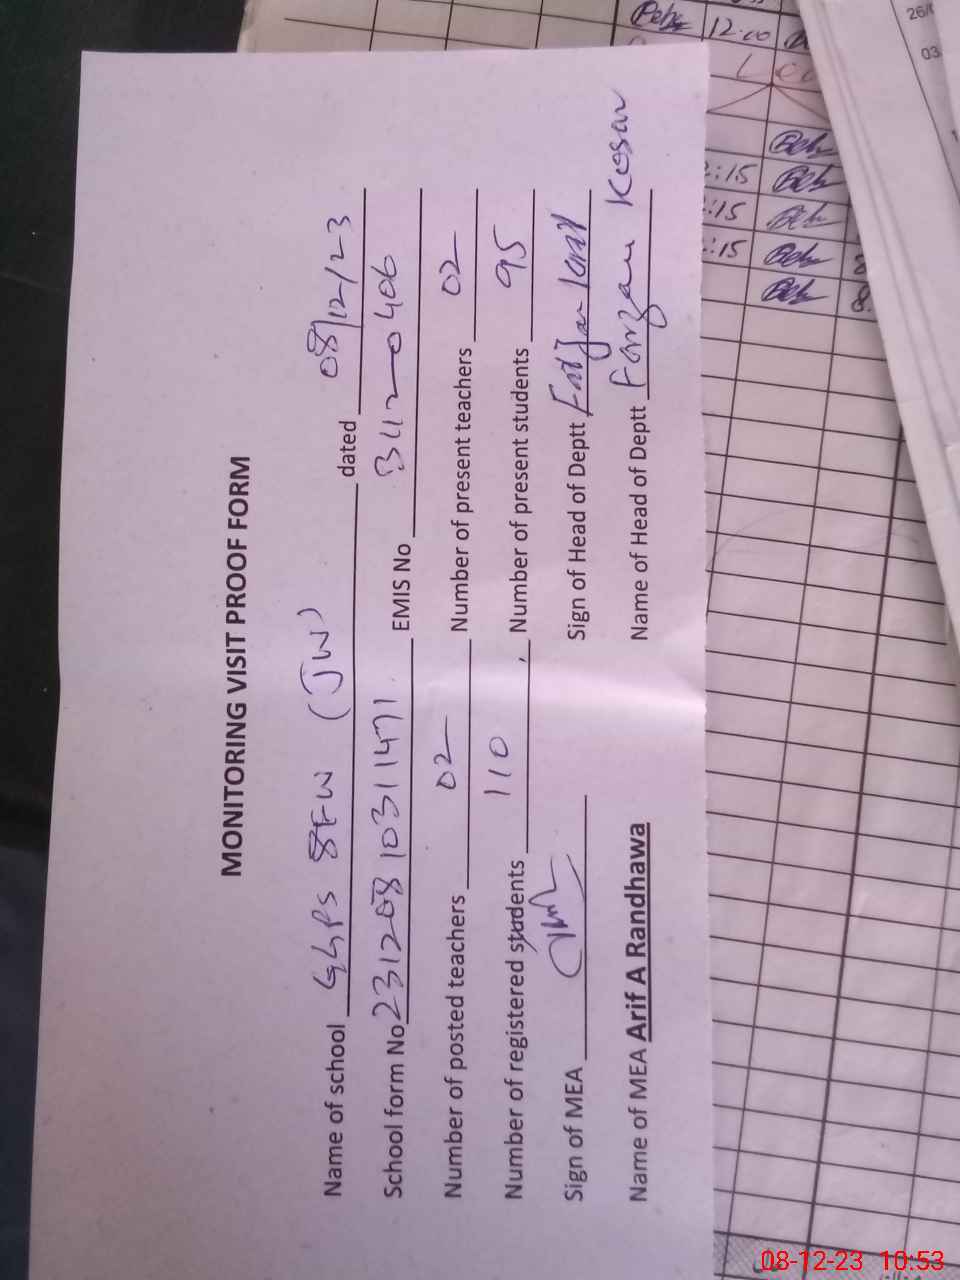 MONITORING VISIT PROOF FORM
Name of school GGPS 8EW (JW) dated 08/12/23
School form No 23120810311471 EMIS No 31120406
Number of posted teachers 02 Number of present teachers 02
Number of registered students 110 Number of present students 95
Sign of MEA Sign of Head of Deptt
Name of MEA Arif A Randhawa Name of Head of Deptt Farzana Kosar
12:00
:15
:15
:15
26/
03
08-12-23 10:53